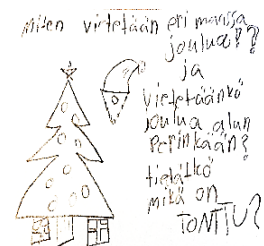 miten vietetään eri maissa
joulua??
ja
vietetäänkö
joulua alun
perinkään?
tiedätkö
mikä on
TONTTU?